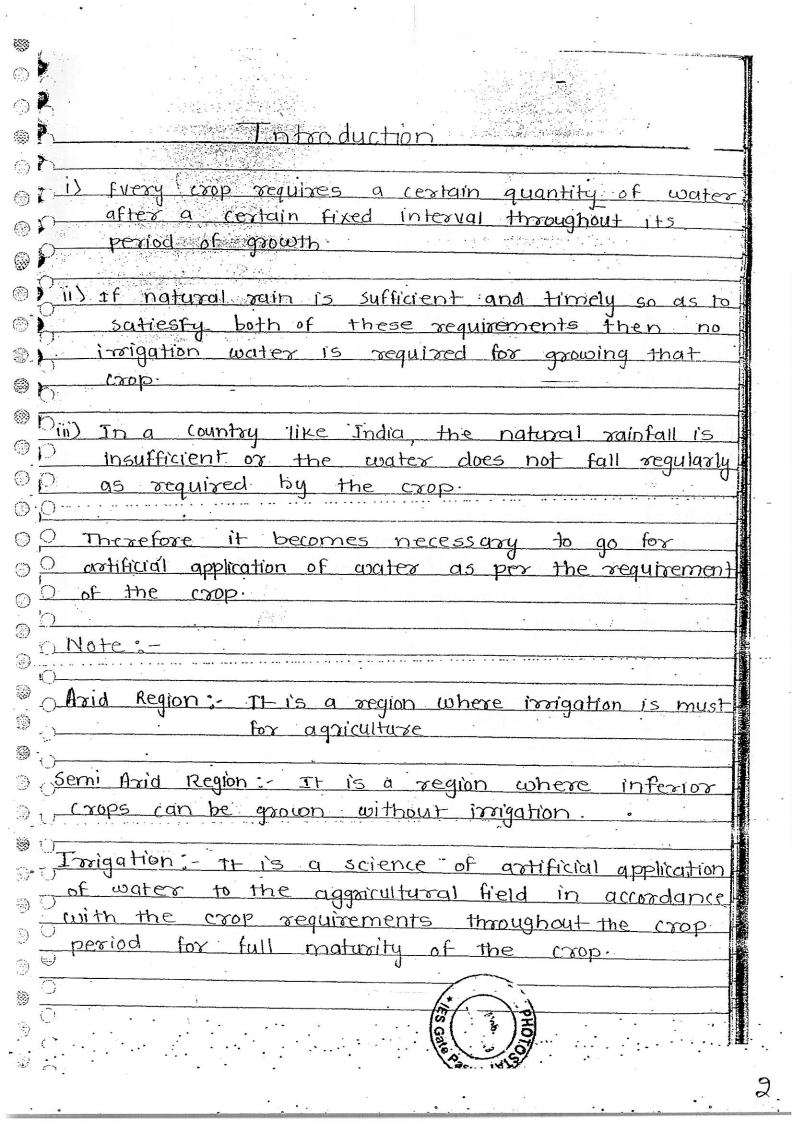 Introduction
i) Every crop requires a certain quantity of water
after a certain fixed interval throughout its
period of growth.
ii) If natural rain is sufficient and timely so as to
satiesfy both of these requirements then no
irrigation water is required for growing that
crop.
iii) In a country like India, the natural rainfall is
insufficient or the water does not fall regularly
as required by the crop.
Therefore it becomes necessary to go for
artificial application of water as per the requirement
of the crop.
Note :-
Arid Region :- It is a region where irrigation is must
for agriculture
Semi Arid Region :- It is a region where inferior
crops can be grown without irrigation.
Irrigation :- It is a science of artificial application
of water to the aggricultural field in accordance
with the crop requirements throughout the crop
period for full maturity of the crop.
PHOTOSTAT
IES Gate
2